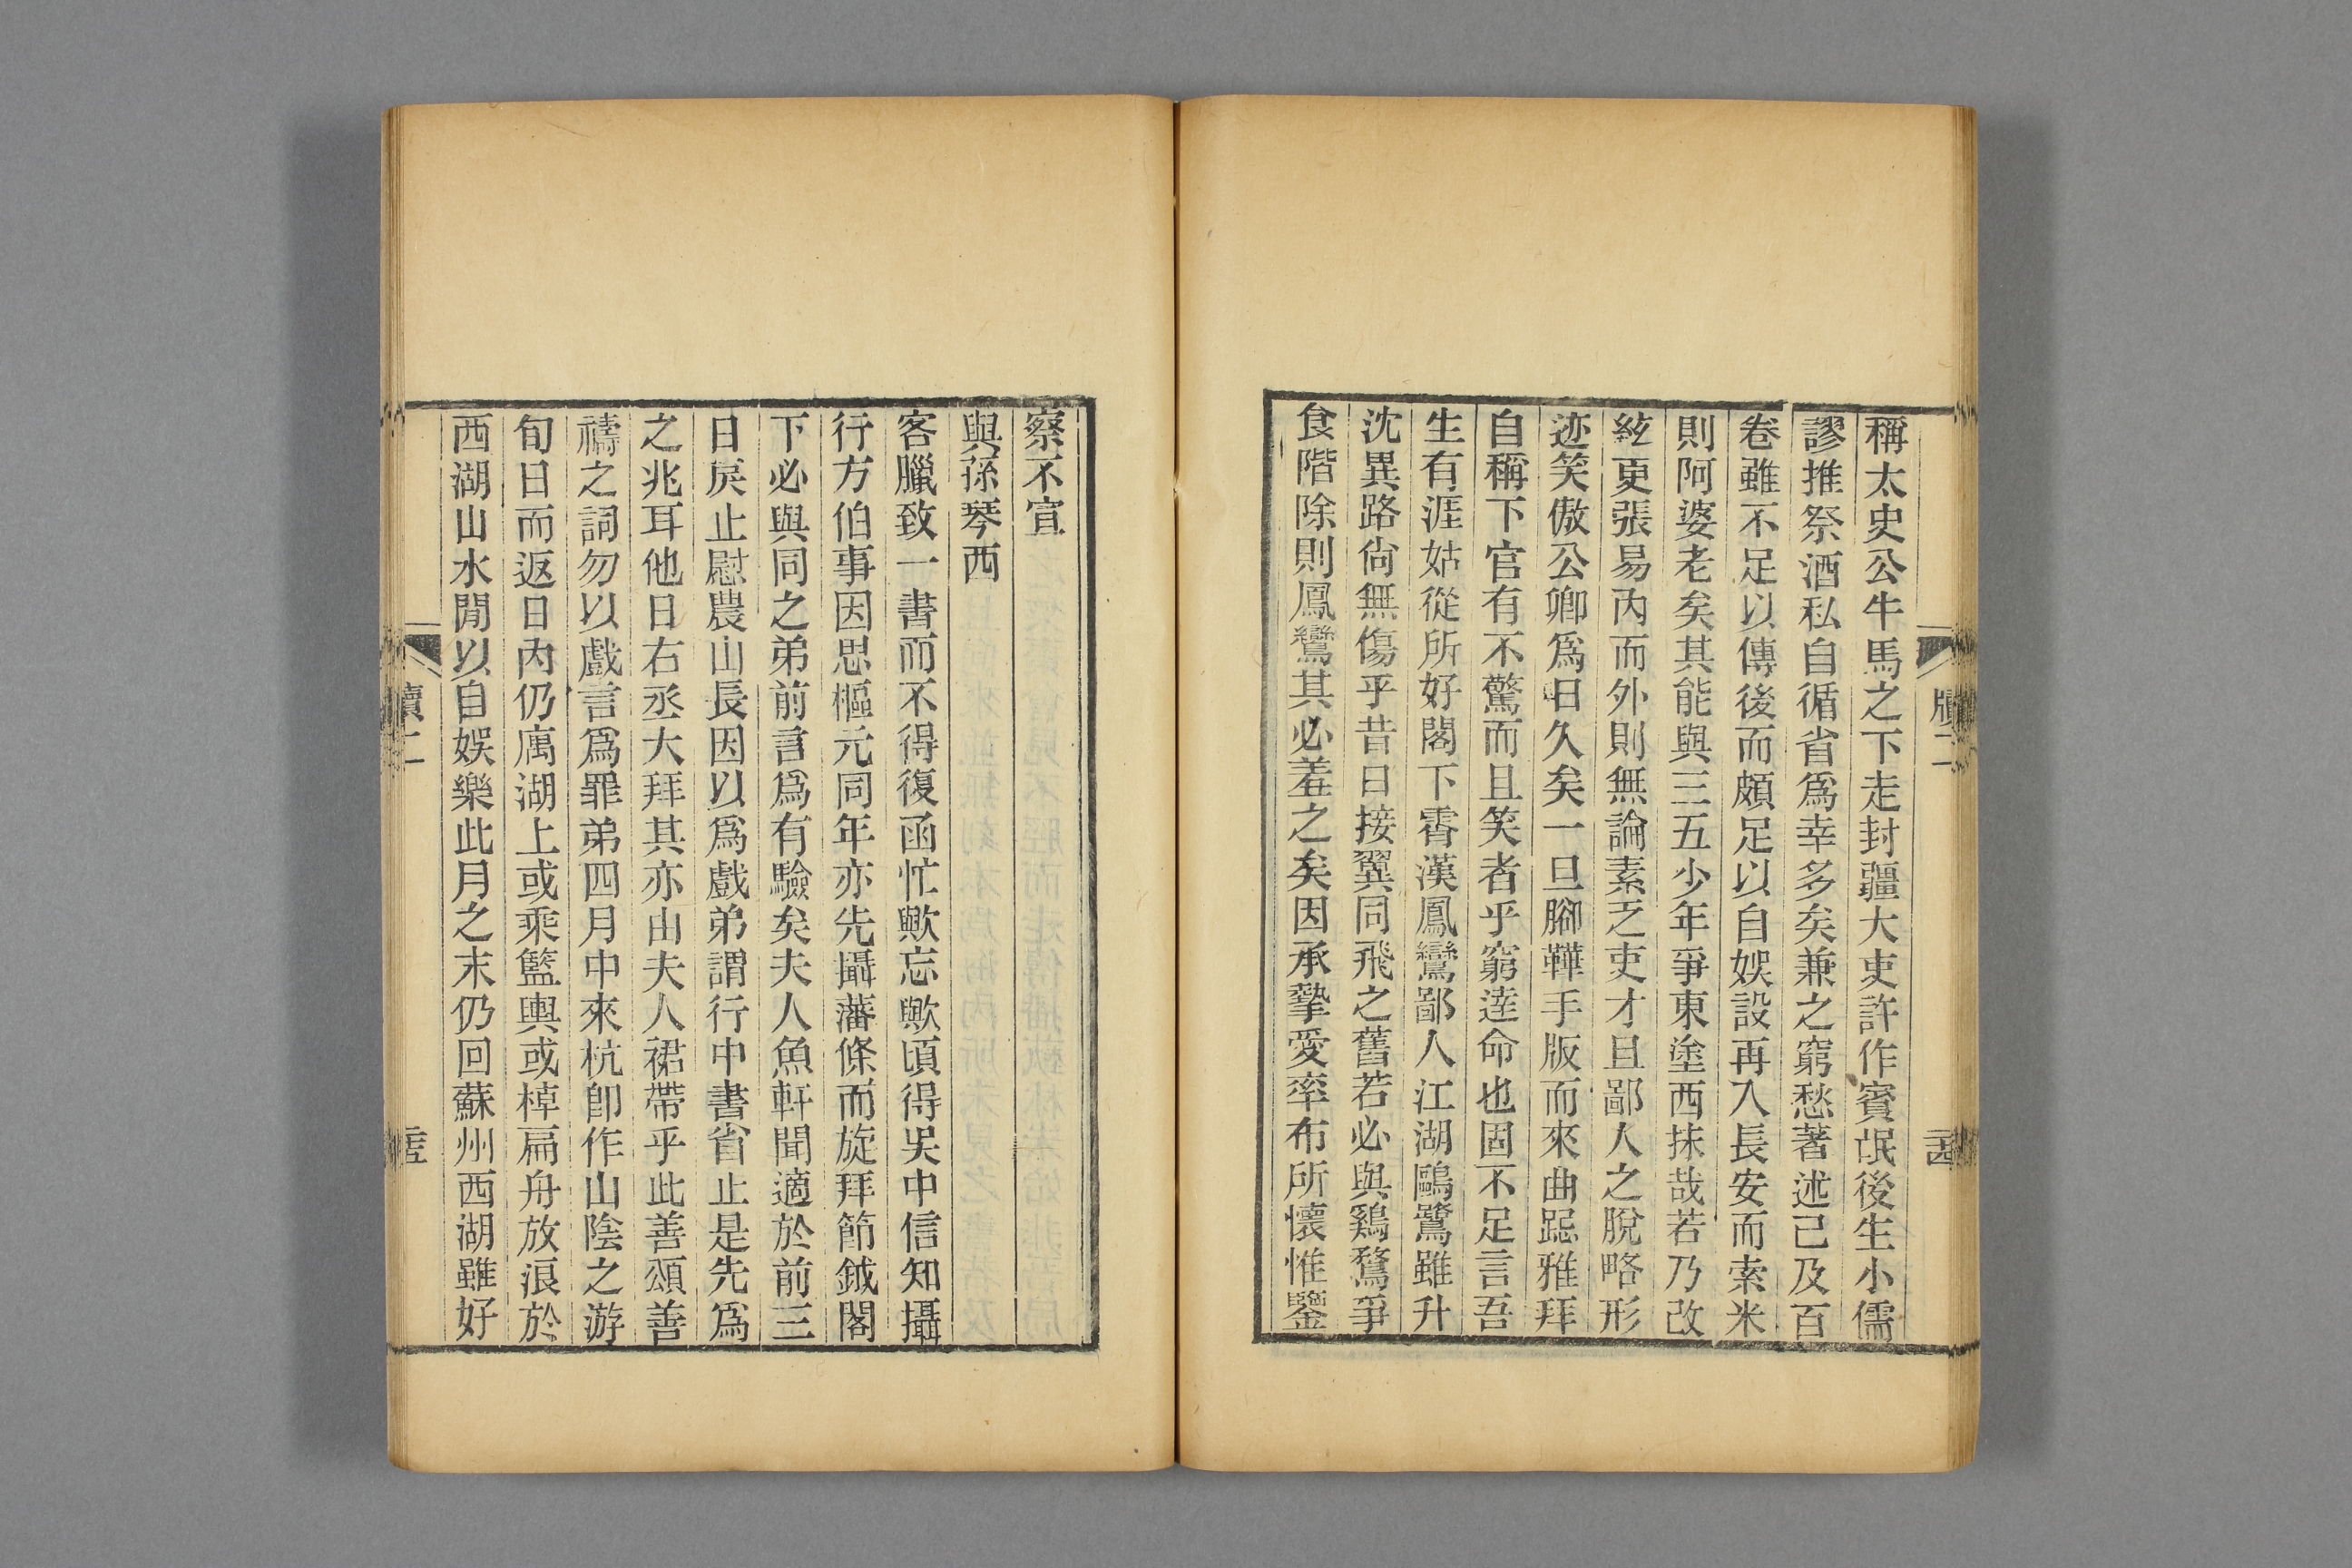 稱太史公牛馬之下走封疆大吏許作賓氓後生小儒
謬推祭酒私自循省爲幸多矣兼之窮愁著述已及百
卷雖不足以傳後而頗足以自娛設再入長安而索米
則阿婆老矣其能與三五少年爭東塗西抹哉若乃改
絃更張易內而外則無論素乏吏才且鄙人之脫略形
迹笑傲公卿爲日久矣一旦腳鞾手版而來曲跽雅拜
自稱下官有不驚而且笑者乎窮達命也固不足言吾
生有涯姑從所好閣下霄漢鳳鸞鄙人江湖鷗鷺雖升
沈異路尙無傷乎昔日接翼同飛之舊若必與鷄鶩爭
食階除則鳳鸞其必羞之矣因承摯愛率布所懷惟鑒
牘二
二四
察不宣
與孫琴西
客臘致一書而不得復函忙歟忘歟頃得吳中信知攝
行方伯事因思樞元同年亦先攝藩條而旋拜節鉞閣
下必與同之弟前言爲有驗矣夫人魚軒聞適於前三
日戾止慰農山長因以爲戲弟謂行中書省止是先爲
之兆耳他日右丞大拜其亦由夫人裙帶乎此善頌善
禱之詞勿以戲言爲罪弟四月中來杭卽作山陰之游
旬日而返日內仍寓湖上或乘籃輿或棹扁舟放浪於
西湖山水閒以自娛樂此月之末仍回蘇州西湖雖好
牘二
二五